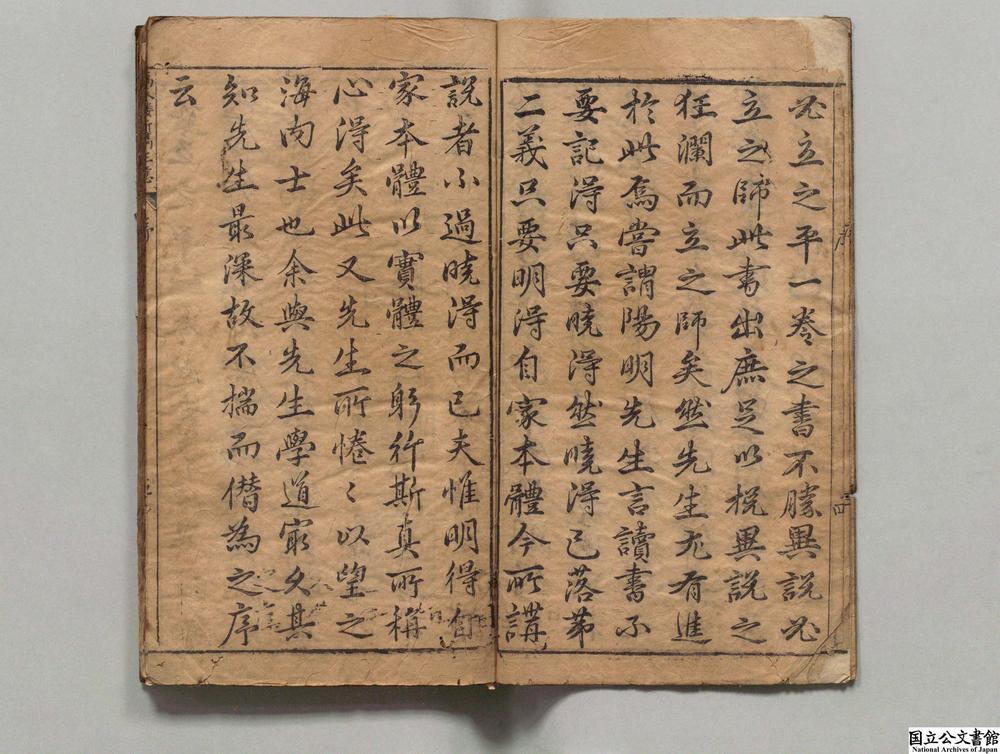 必立之平一卷之書不勝異說必
立之師此書出庶足以挽異說之
狂瀾而立之師矣然先生尤有進
於此焉嘗謂陽明先生言讀書不
要記得只要曉得然曉得已落第
二義只要明得自家本體今所講
說者不過曉得而已夫惟明得自
家本體以實體之躬行斯真所稱
心得矣此又先生所惓〻以望之
海内士也余與先生學道最久其
知先生最深故不揣而僣為之序
云
序
四
国立公文書館
National Archives of Japan